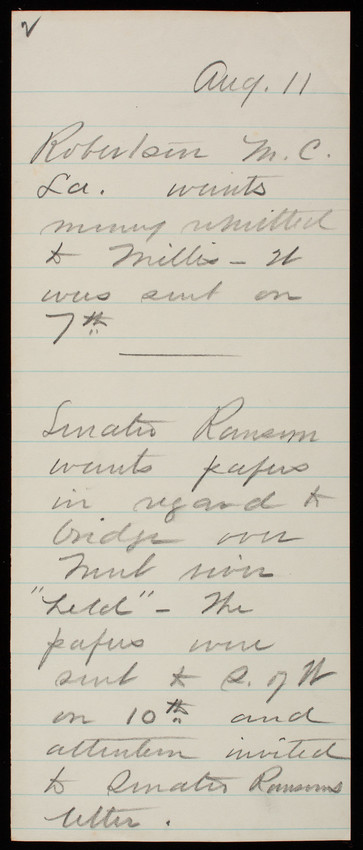 2
Aug. 11
Robertson M. C.
La. wants
money remitted
to Millis - It
was sent on
7th
Senator Ransom
wants papers
in regard to
bridge over
Trent river
"held" - The
papers were
sent to S. of W
on 10th and
attention invited
to Senator Ransoms
letter.